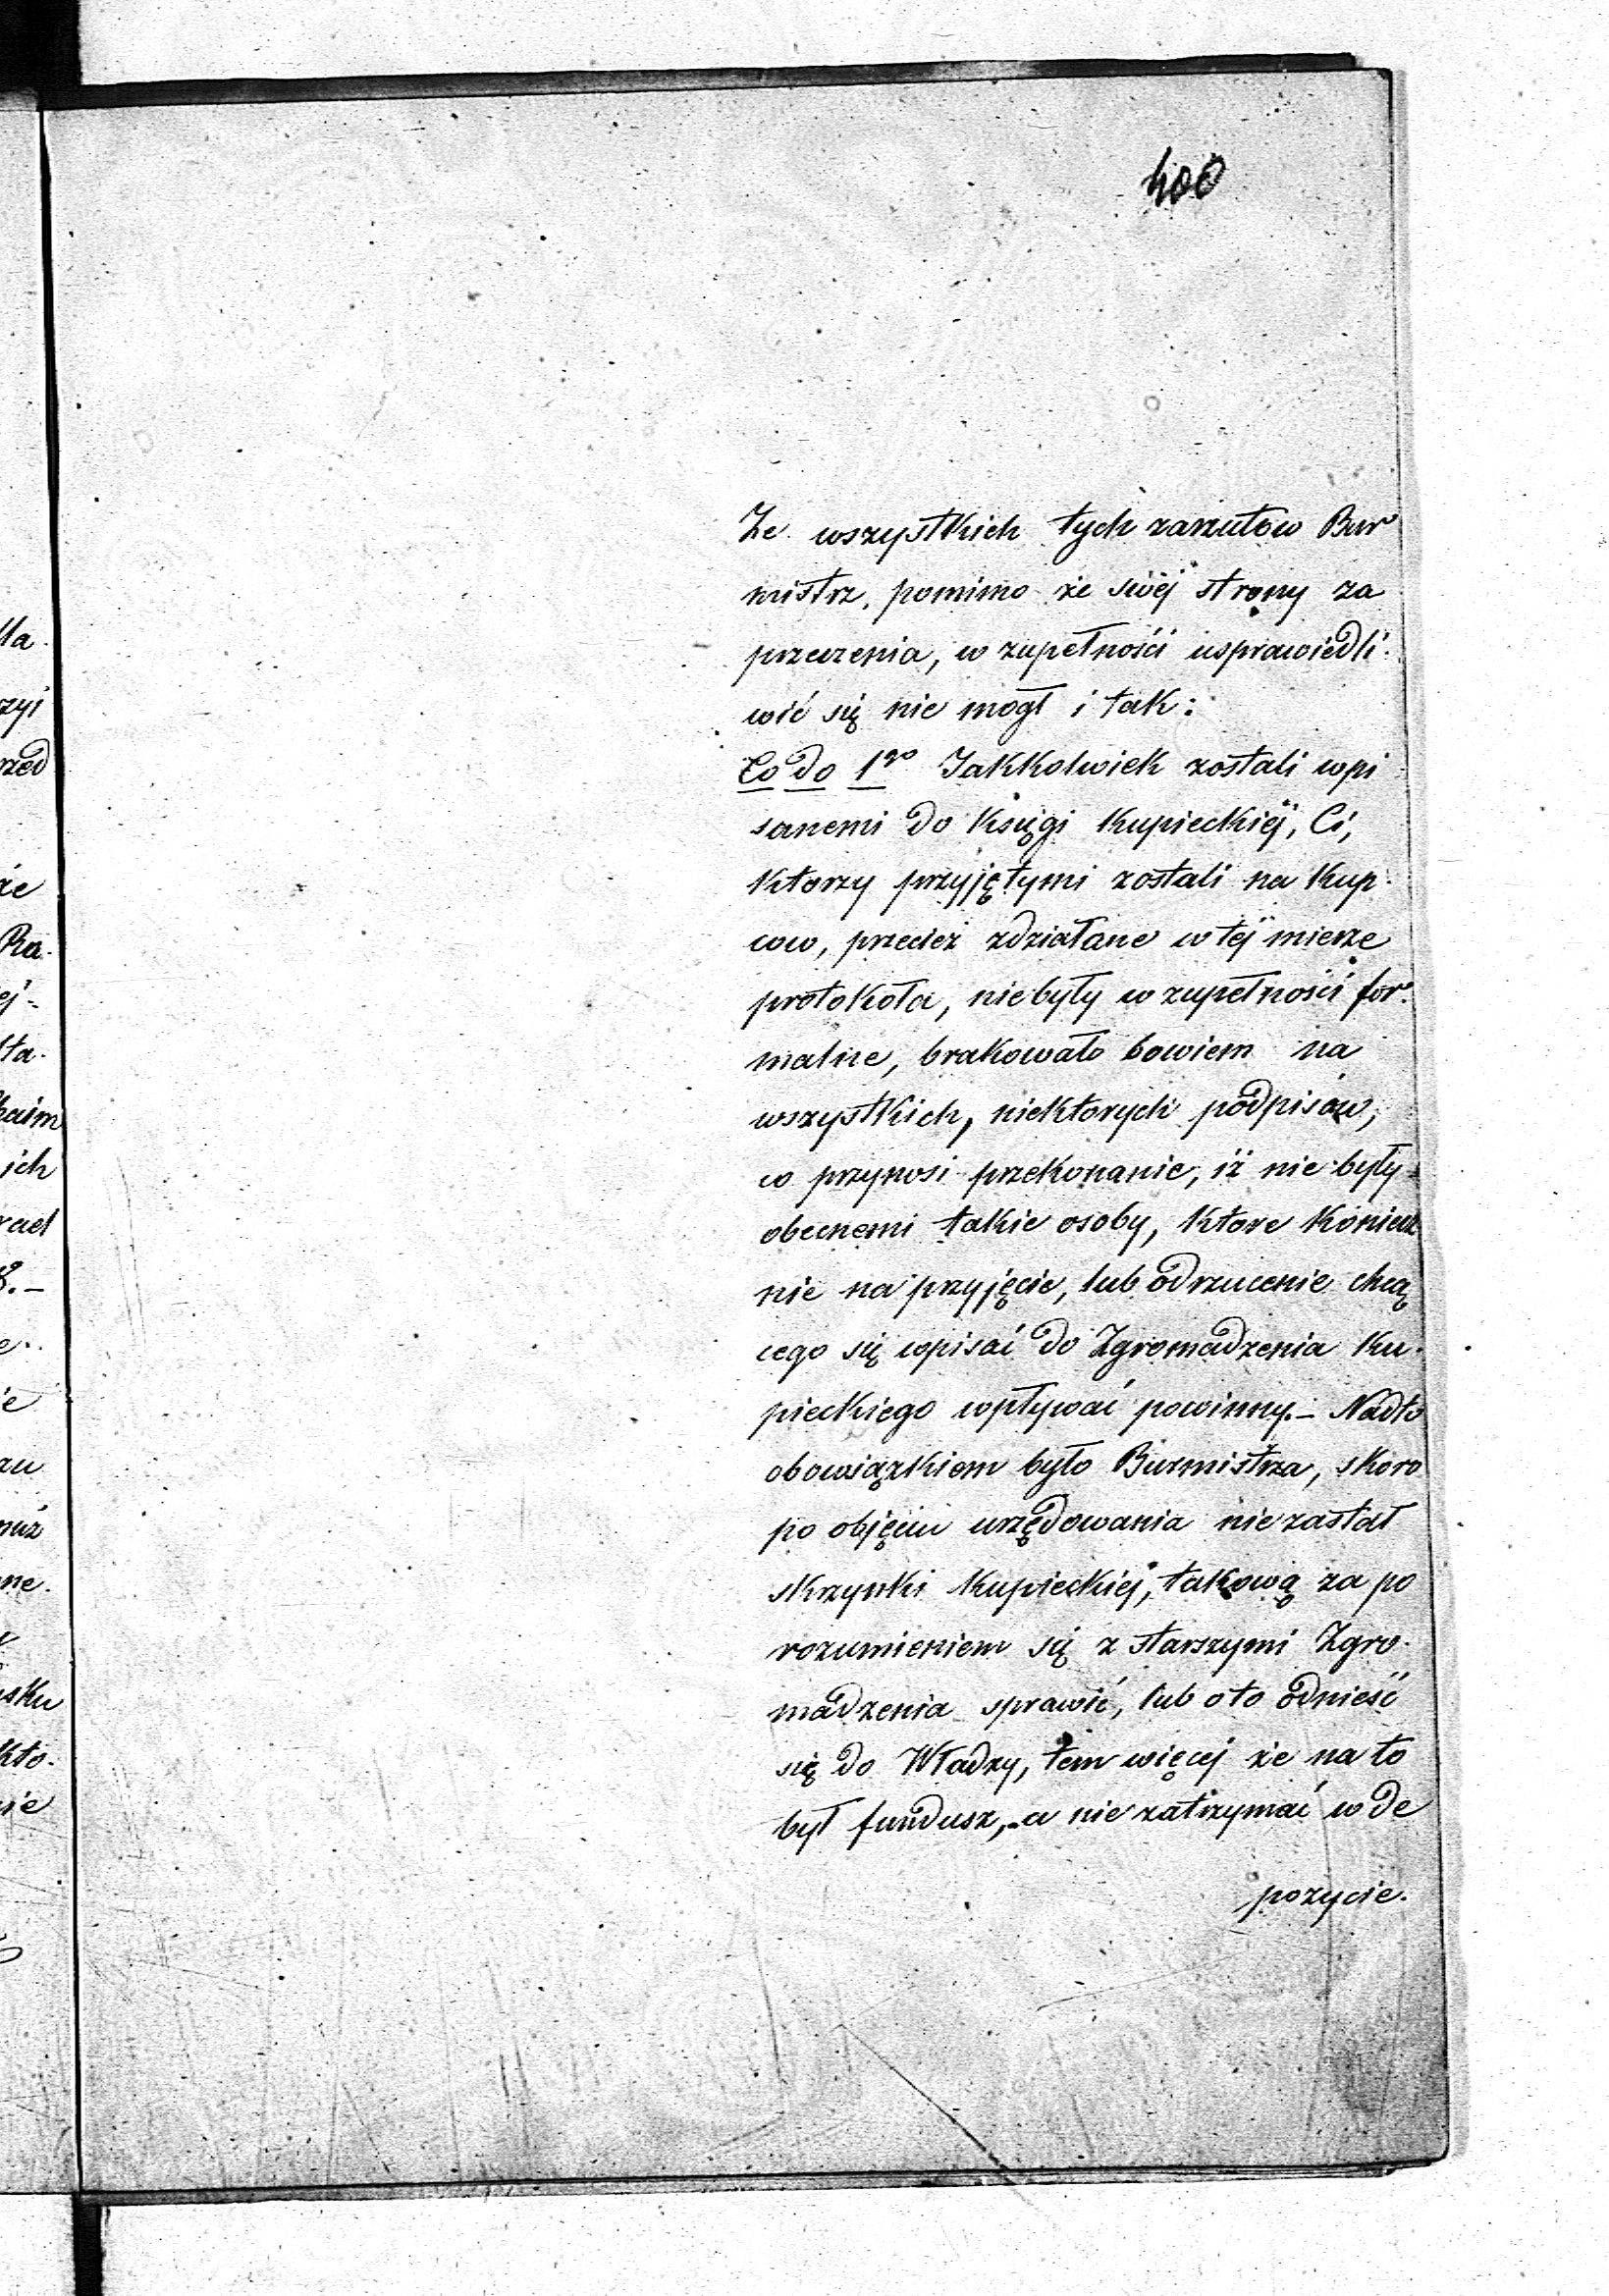 400
Ze wszystkich tych zarzutów Bur
mistrz, pomimo ze swéj strony za
przeczenia, w zupełności usprawiedli.
wić się nie mogł i tak:
Co do 1go Jakkolwiek zostali wpi
sanemi do Księgi Kupieckiéj, Ci,
Ktorzy przyjętymi zostali na Kup.
cow, przecież zdziałane w téj mierze
protokoła, niebyły w zupełności for.
malne, brakowało bowiem na
wszystkich, niektorych podpisów,
co przynosi przekonanie, iż nie były
obecnemi takie osoby, Ktore Koniecz
nie na przyjęcie, lub odrzucenie chcą
cego się wpisać do Zgromadzenia Ku.
pieckiego wpływać powinny. – Nadto
obowiązkiem było Burmistrza, skoro
po objęciu urzędowania nie zastał
skrzynki Kupieckiéj, takową za po
rozumieniem się z starszymi Zgro.
madzenia sprawić, lub o to odnieść
się do Władzy, tem więcej że na to
był fundusz, a nie zatrzymać w de
pozycie.
lla.
zyi
rzed
że
Ra.
ej-
ta.
haim
ich
rael
8. –
e.
ie
zu
muż
ne.
sku
Kto.
nie